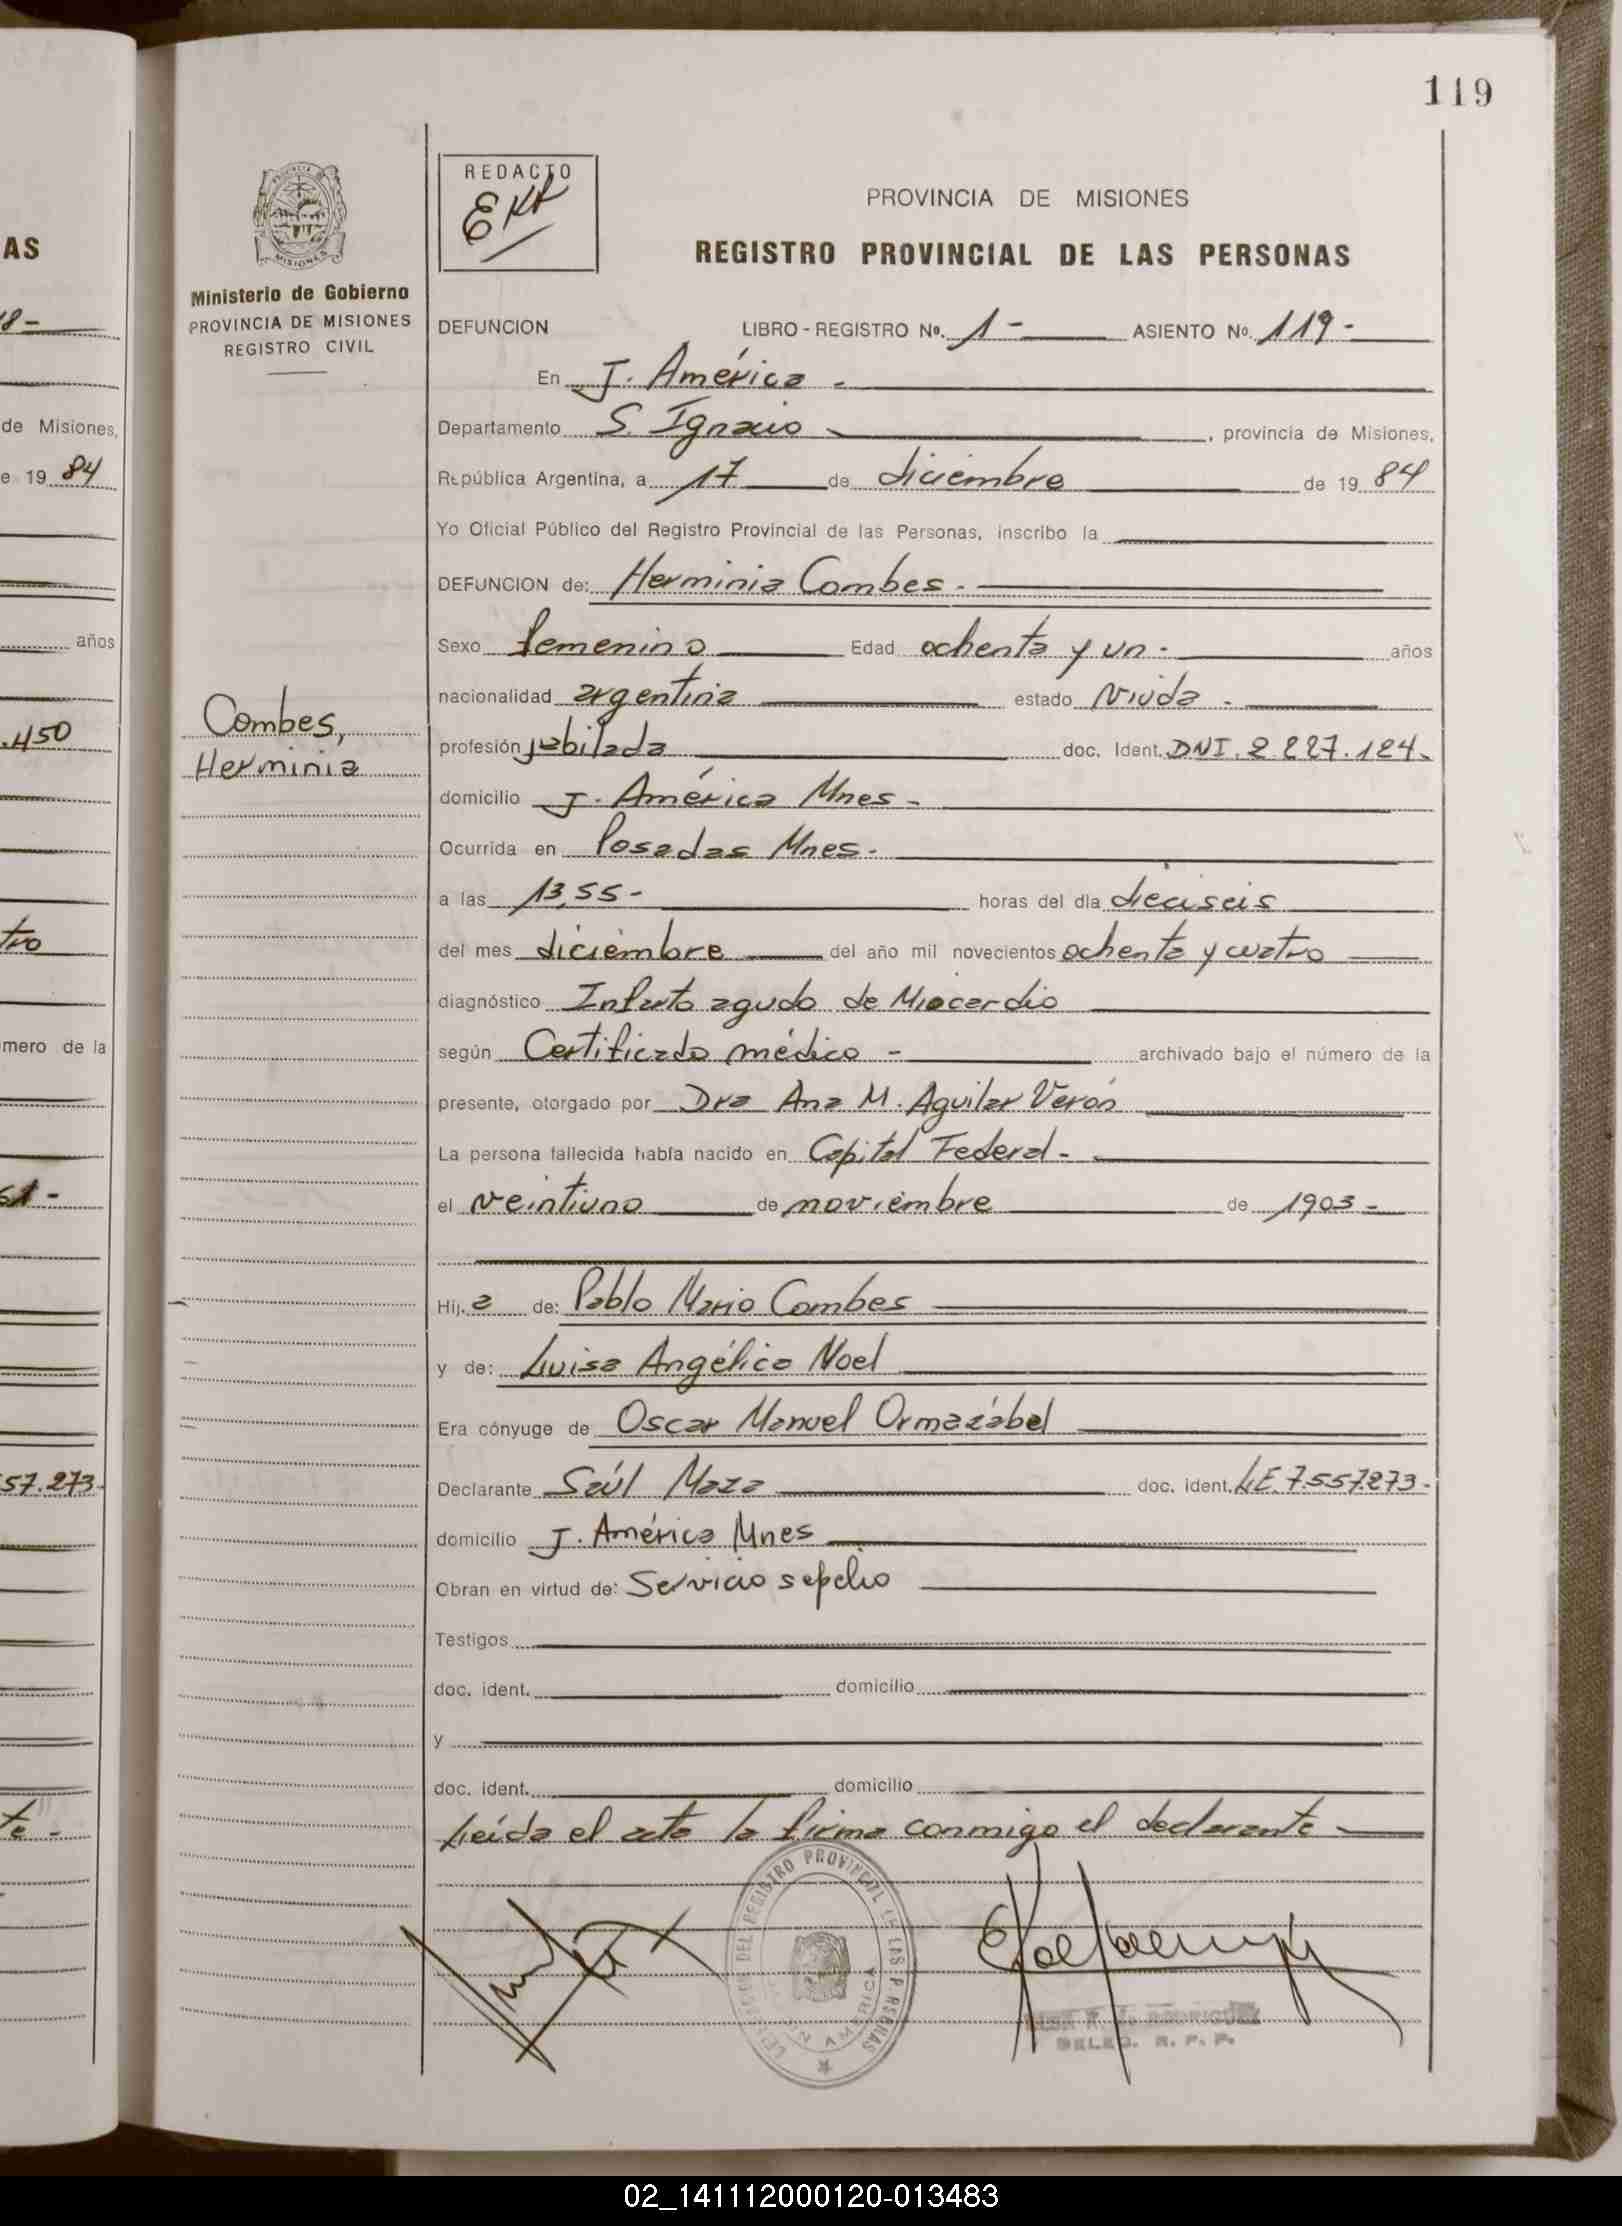 119
AS
8-
de Misiones,
e 19 84
años
.450
tro
mero de la
61-
57.273-
te-
MISIONES
Ministerio de Gobierno
PROVINCIA DE MISIONES
REGISTRO CIVIL
Combes,
Herminia
REDACTO
PROVINCIA DE MISIONES
REGISTRO PROVINCIAL DE LAS PERSONAS
DEFUNCION LIBRO - REGISTRO Nº. 1- ASIENTO Nº. 119-
En J. América -
Departamento S. Ignacio , provincia de Misiones,
República Argentina, a 17 de diciembre de 19 84
Yo Oficial Público del Registro Provincial de las Personas, inscribo la
DEFUNCION de: Herminia Combes.
Sexo femenino Edad ochenta y un - años
nacionalidad argentina estado viuda -
profesión jubilada doc. Ident. DNI. 2.227.124.
domicilio J. América Mnes -
Ocurrida en Posadas Mnes.
a las 13,55- horas del día dieciseis
del mes diciembre del año mil novecientos ochenta y cuatro
diagnóstico Infarto agudo de Miocardio
según Certificado médico - archivado bajo el número de la
presente, otorgado por Dra Ana M. Aguilar Verón
La persona fallecida había nacido en Capital Federal -
el veintiuno de noviembre de 1903-
Hij.a de: Pablo Mario Combes
y de: Luisa Angélica Noel
Era cónyuge de Oscar Manuel Ormazábel
Declarante Saúl Maza doc. ident. LE. 7.557.273-
domicilio J. América Mnes
Obran en virtud de: Servicio sepelio
Testigos
doc. ident. domicilio
y
doc. ident. domicilio
Leída el acta la firma conmigo el declarante
DEL REGISTRO PROVINCIAL DE LAS PERSONAS
AMERICA
DELEG. R. P. P.
02_141112000120-013483